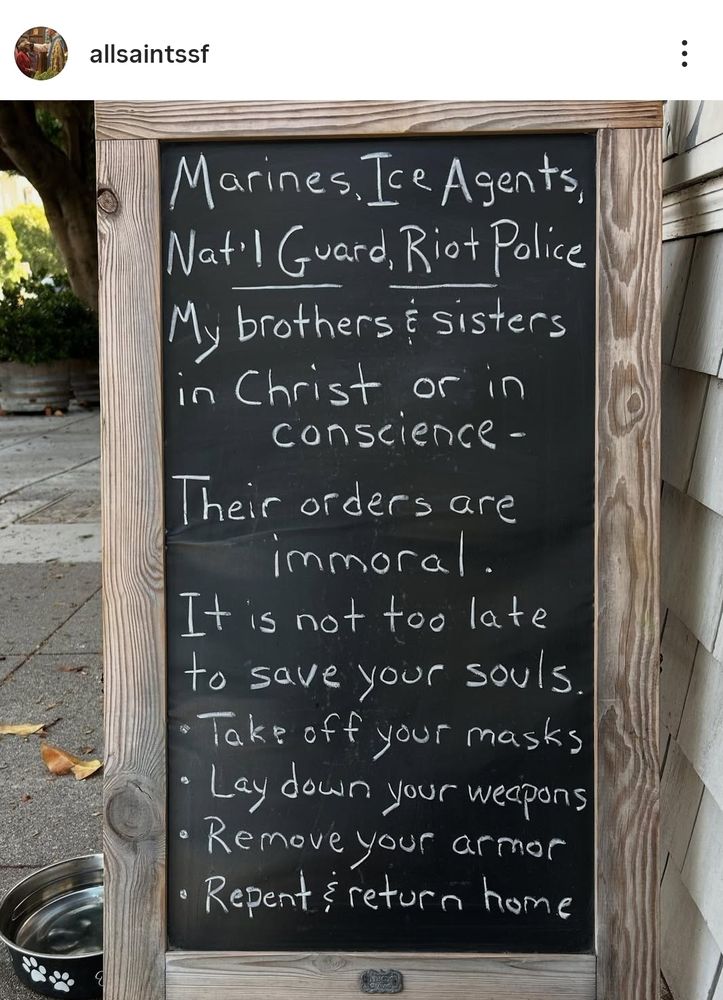 allsaintssf
Marines, Ice Agents,
Nat'l Guard, Riot Police
My brothers & sisters
in Christ or in
conscience-
Their orders are
immoral.
It is not too late
to save your souls.
• Take off your masks
• Lay down your weapons
• Remove your armor
• Repent & return home